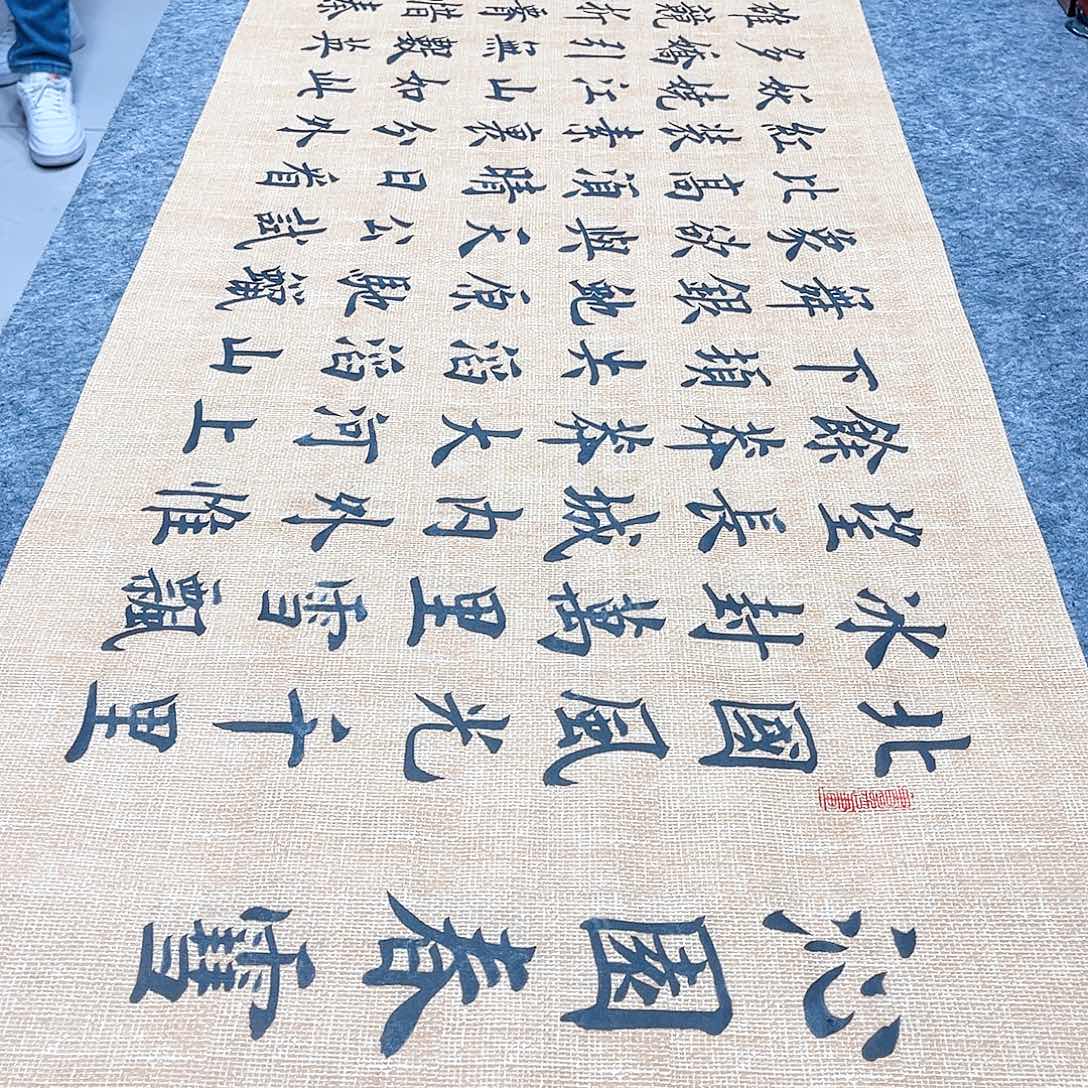 沁園春雪
北國風光千里
冰封萬里雪飄
望長城内外惟
餘莽莽大河上
下頓失滔滔山
舞銀蛇原馳蠟
象欲與天公試
比高須晴日看
紅裝素裹分外
妖嬈江山如此
多嬌引無數英